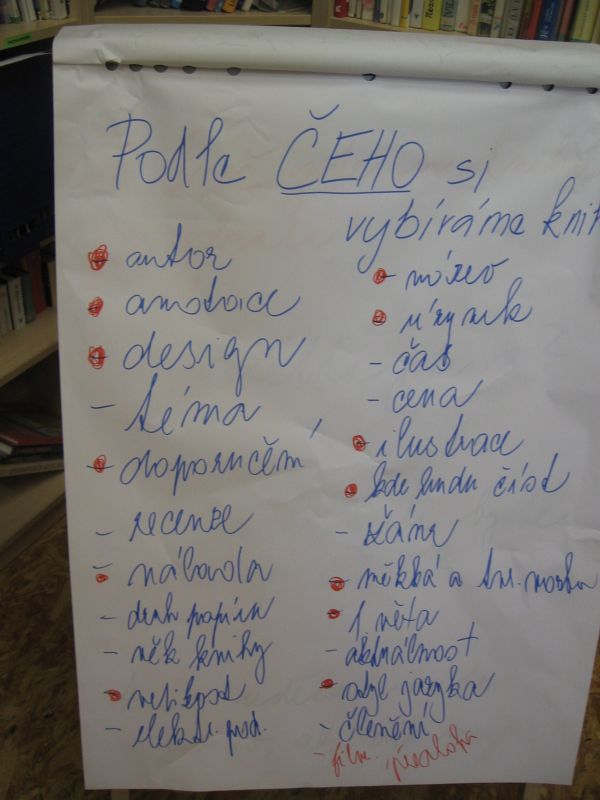 Podle ČEHO si
vybíráme knih
autor
anotace
design
- téma
doporučení
- recenze
- nálada
- druh papíru
- věk knihy
- velikost
- elektr. pod.
název
úryvek
- čas
- cena
ilustrace
kde budu číst
- žánr
- měkká a tvr. vazba
- 1 věta
- aktuálnost
- styl jazyka
- členění
- film. předloha